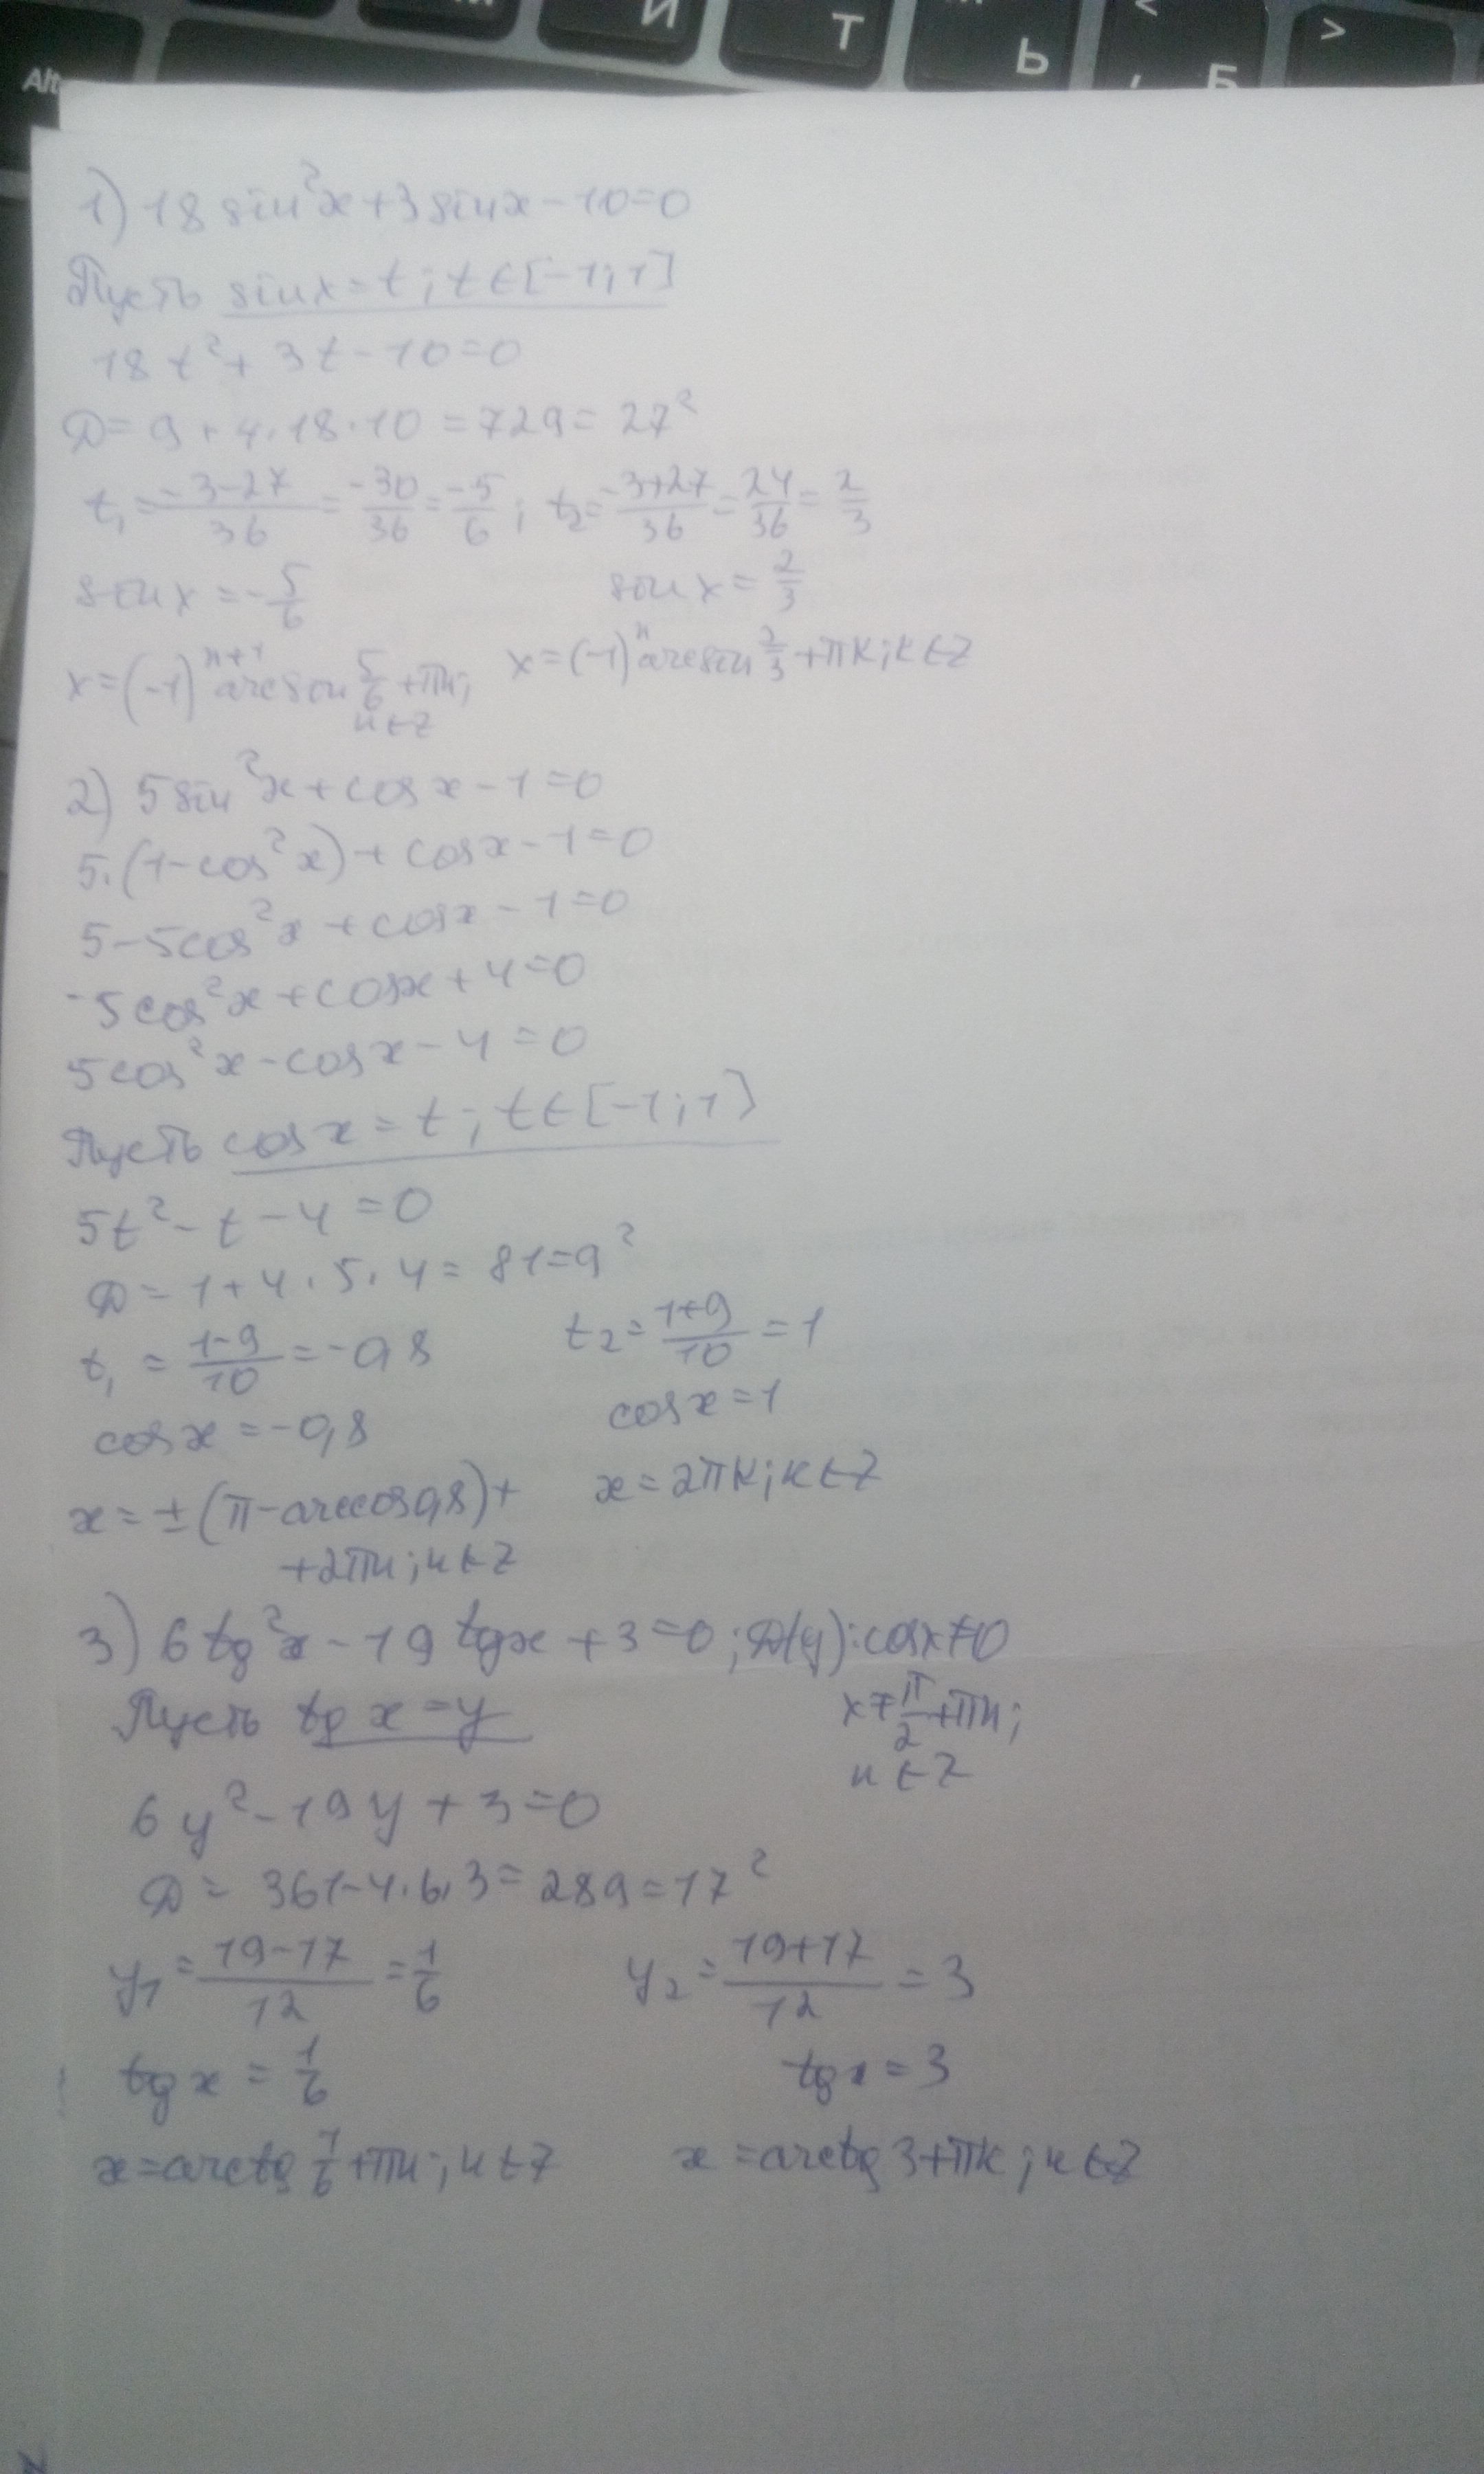 Alt
И
Т
Ь
<
,
Б
>
1) 18 sin²x + 3 sinx - 10 = 0
Пусть sinx = t; t ∈ [-1; 1]
18t² + 3t - 10 = 0
D = 9 + 4·18·10 = 729 = 27²
t₁ = (-3-27)/36 = -30/36 = -5/6; t₂ = (-3+27)/36 = 24/36 = 2/3
sin x = -5/6 sin x = 2/3
x = (-1)ⁿ⁺¹ arcsin 5/6 + πn; x = (-1)ⁿ arcsin 2/3 + πk; k ∈ Z
n ∈ Z
2) 5 sin²x + cos x - 1 = 0
5·(1 - cos²x) + cosx - 1 = 0
5 - 5cos²x + cosx - 1 = 0
-5cos²x + cosx + 4 = 0
5cos²x - cosx - 4 = 0
Пусть cos x = t; t ∈ [-1; 1]
5t² - t - 4 = 0
D = 1 + 4·5·4 = 81 = 9²
t₁ = (1-9)/10 = -0,8 t₂ = (1+9)/10 = 1
cosx = -0,8 cosx = 1
x = ±(π - arccos0,8) + x = 2πk; k ∈ Z
+ 2πn; n ∈ Z
3) 6 tg²x - 19 tgx + 3 = 0; D(y): cosx ≠ 0
Пусть tg x = y x ≠ π/2 + πn;
n ∈ Z
6y² - 19y + 3 = 0
D = 361 - 4·6·3 = 289 = 17²
y₁ = (19-17)/12 = 1/6 y₂ = (19+17)/12 = 3
tg x = 1/6 tg x = 3
x = arctg 1/6 + πn; n ∈ Z x = arctg 3 + πk; k ∈ Z